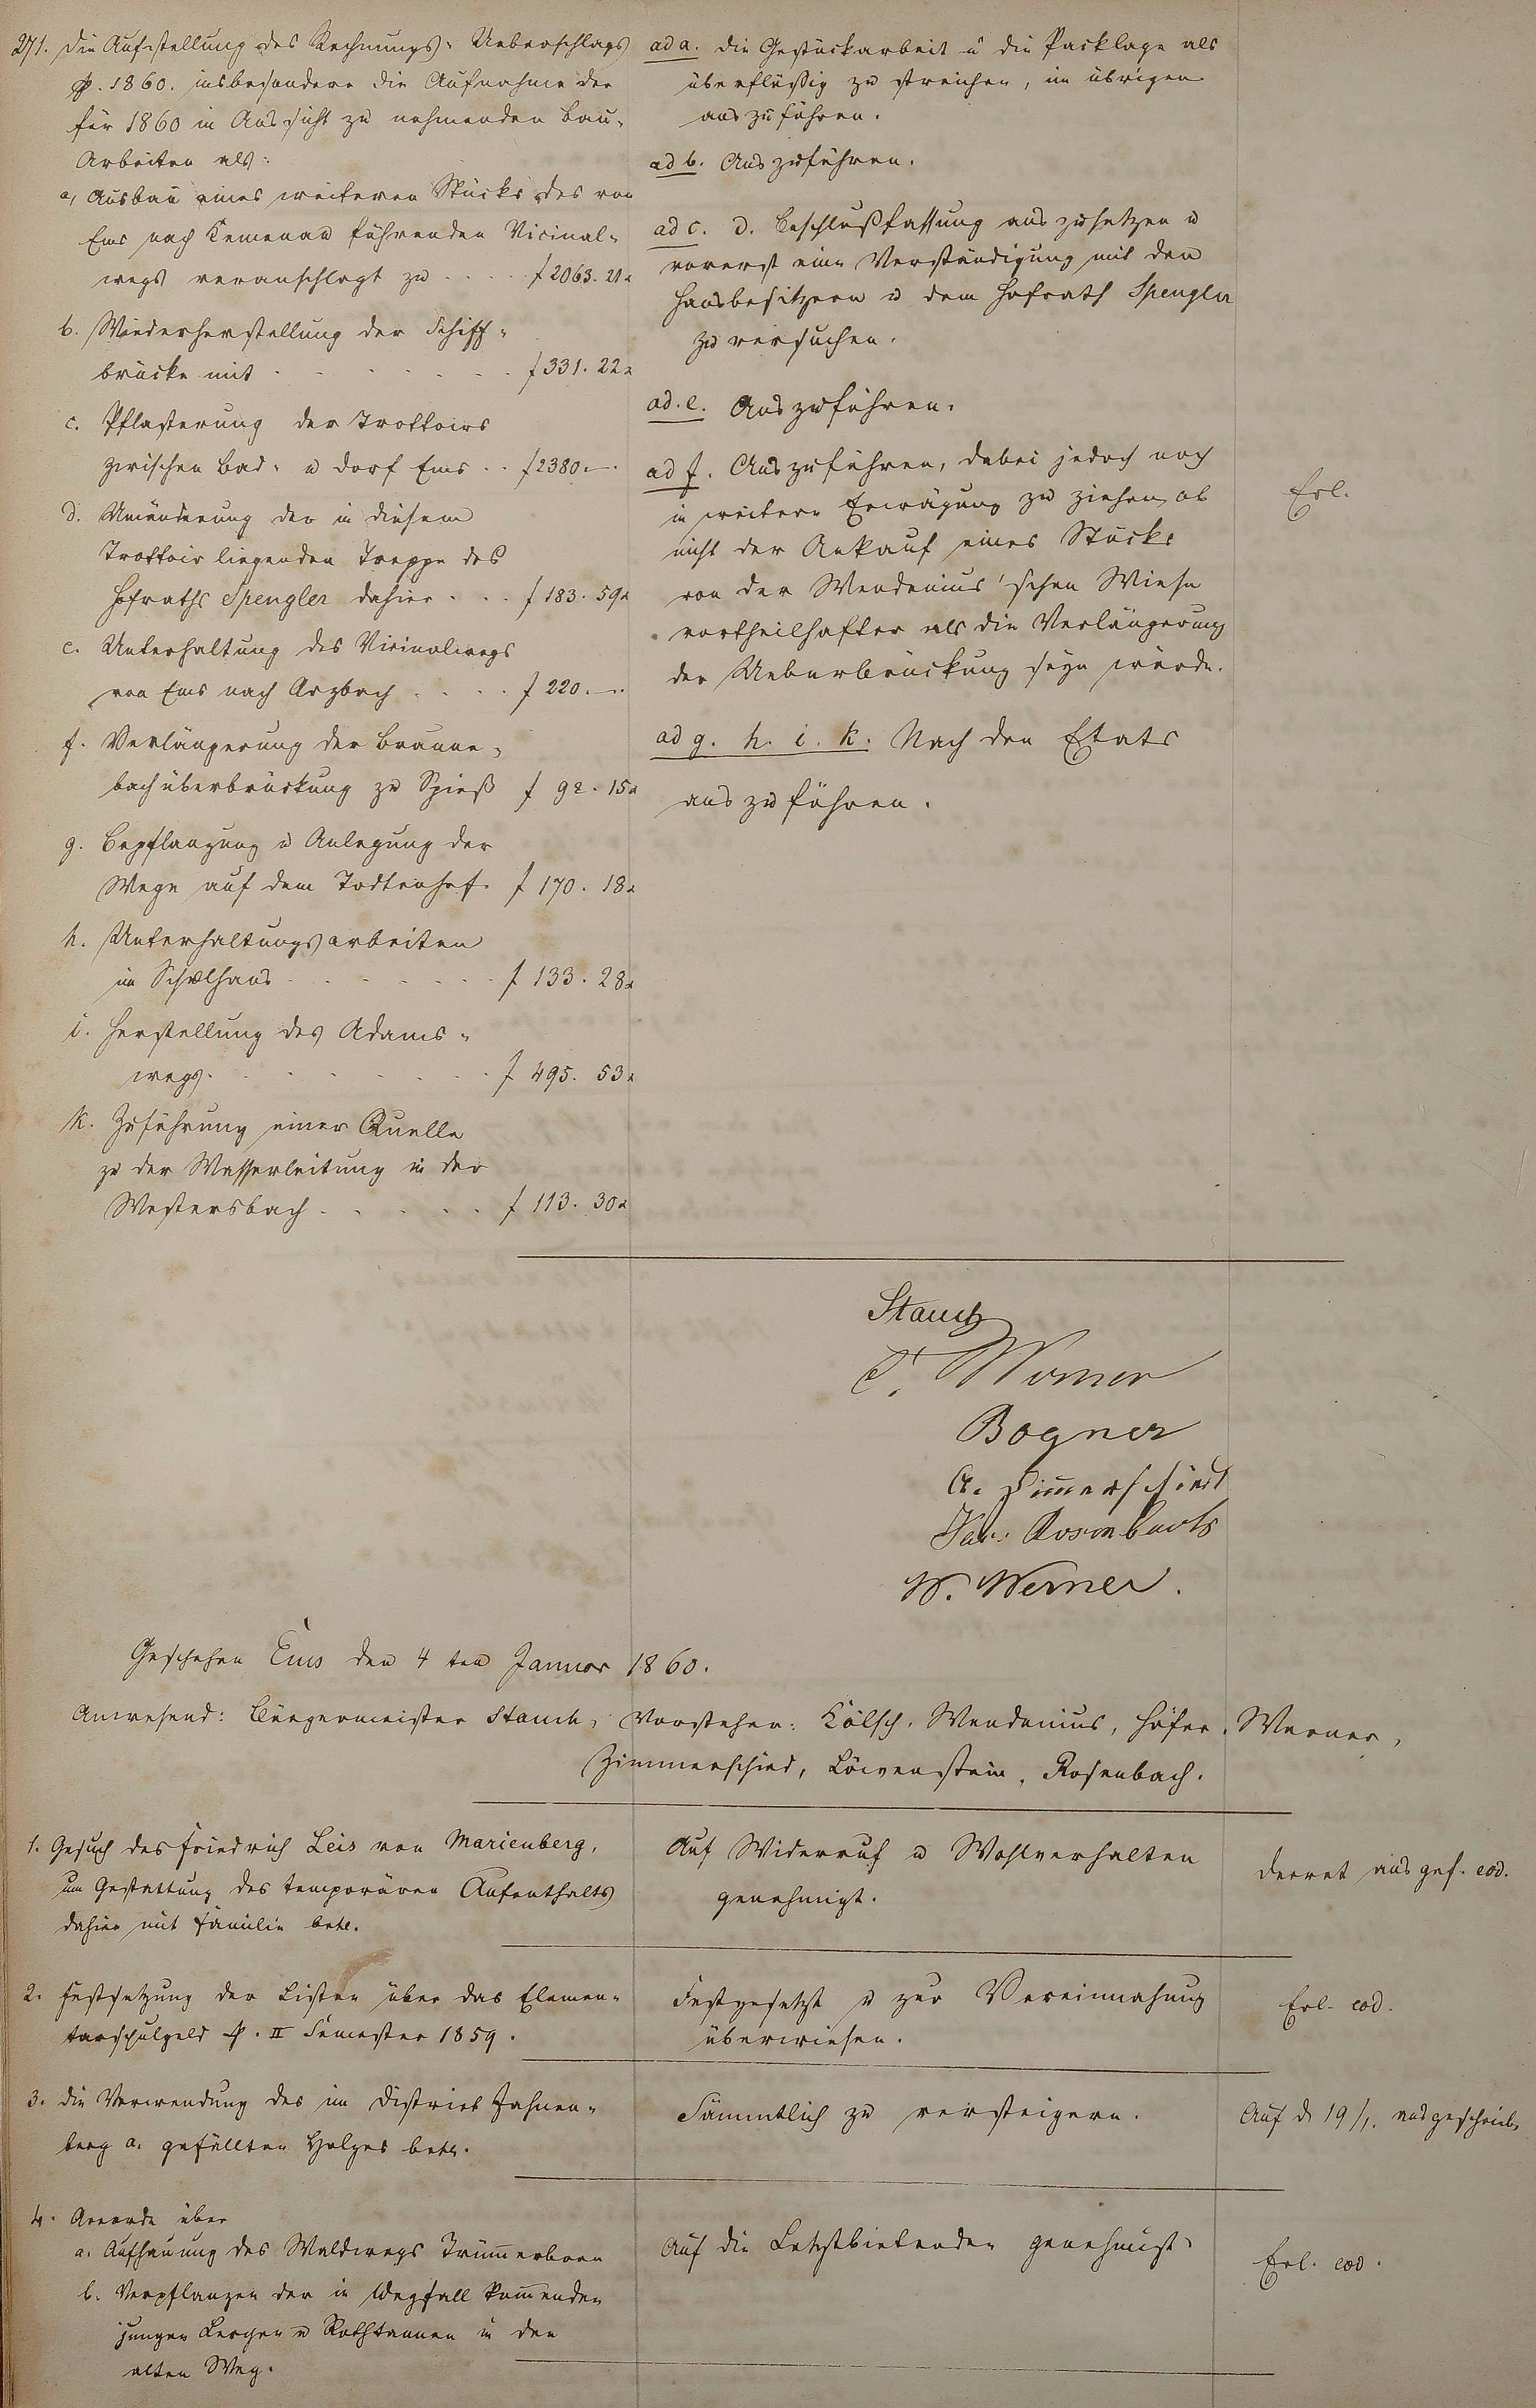 271. Die Aufstellung des Rechnungs-Ueberschlags
p. 1860. insbesondere die Aufnahme der
für 1860 in Aussicht zu nehmenden Bau-
Arbeiten als:
a, Ausbau eines weiteren Stücks des von
Ems nach Kemenau führenden Vicinal-
wegs veranschlagt zu f 2063. 21 x
b. Wiederherstellung der Schiff-
brücke mit f 331. 22 x
c. Pflasterung der Trottoirs
zwischen Bad- u Dorf Ems f 2380.—.
d. Umänderung der in diesem
Trottoir liegenden Treppe des
Hofraths Spengler dahier f 183. 59 x
e. Unterhaltung des Vicinalwegs
von Ems nach Arzbach f 220.—.
f. Verlängerung der Braune-
bachüberbrückung zu Spieß f 92. 15 x
g. Bepflanzung u Anlegung der
Wege auf dem Todtenhof. f 170. 18 x
h. Unterhaltungsarbeiten
im Schulhaus f 133. 28 x
i. Herstellung des Adams-
wegs. f 495. 53 x
k. Zuführung einer Quelle
zu der Wasserleitung in der
Westersbach f 113. 30 x
ad a. Die Gestückarbeit u die Packlage als
überflüßig zu streichen, im übrigen
auszuführen.
ad b. Auszuführen.
ad c. d. Beschlußfassung auszusetzen u
vorerst eine Verständigung mit den
Hausbesitzern u dem Hofrath Spengler
zu versuchen.
ad. e. Auszuführen.
ad f. Auszuführen, dabei jedoch noch
in weitere Erwägung zu ziehen, ob
nicht der Ankauf eines Stücks
von der Wendenius'schen Wiese
vortheilhafter als die Verlängerung
der Ueberbrückung seyn würde.
Erl.
ad g. h. i. k. Nach den Etats
auszuführen.
Stauch
Werner
Bogner
A. Zimmerschied
Rosenbach
W. Werner.
Geschehen Ems den 4ten Januar 1860.
Anwesend: Bürgermeister Stauch, Vorsteher: Kölsch, Wendenius, Höfer, Werner,
Zimmerschied, Löwenstein, Rosenbach.
1. Gesuch des Friedrich Leis von Marienberg,
um Gestattung des temporären Aufenthalts
dahier mit Familie betr.
Auf Widerruf u Wohlverhalten
genehmigt.
Decret ausgef. eod.
2. Festsetzung der Listen über das Elemen-
tarschulgeld p. II Semester 1859.
Festgesetzt u zur Vereinnahmung
überwiesen.
Erl. eod.
3. Die Verwendung des im District Zahnen-
berg a. gefällten Holzes betr.
Sämmtlich zu versteigern.
Auf d 19/1. ausgeschrieb.
4. Accorde über
a. Aufhauung des Waldwegs Trümmerborn
b. Verpflanzen der in Wegfall kommenden
jungen Lerchen u Rothtannen in den
alten Weg.
Auf die Letztbietenden genehmigt.
Erl. eod.